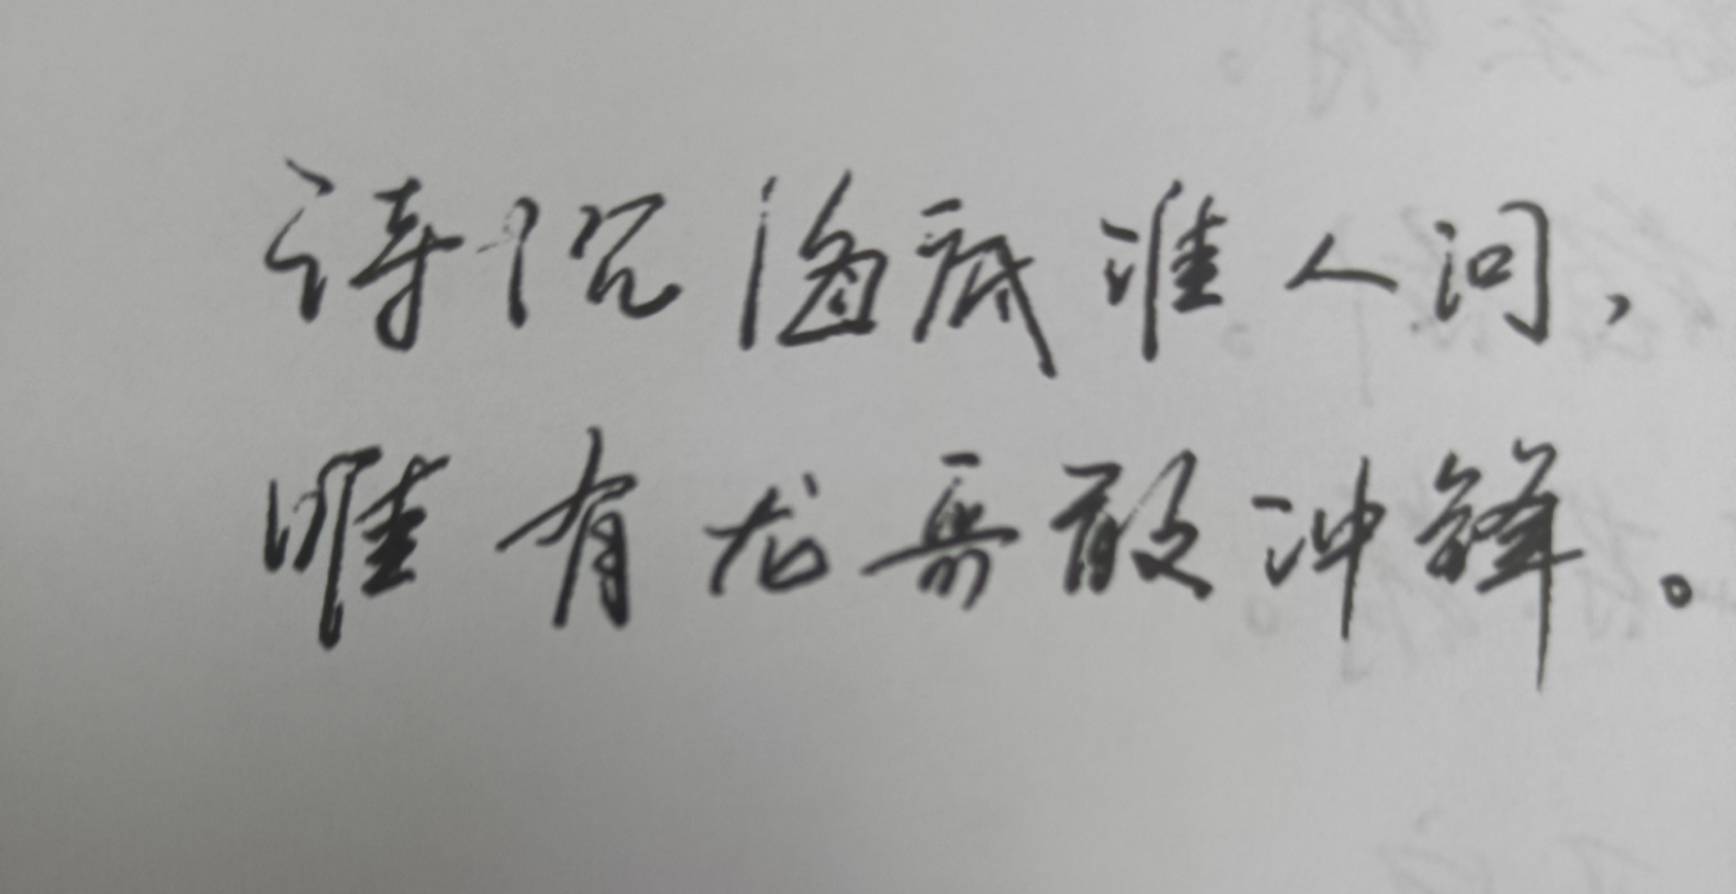 诗沉海底谁人问，
唯有龙哥敢冲锋。